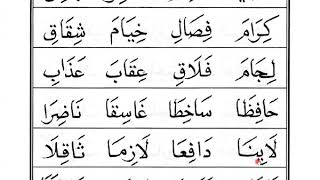 كِرَامَ فِصَالِ خِيَامَ شِقَاقِ
لِجَامَ فَلَاقِ عِقَابَ عَذَابِ
حَافِظَا سَاخِطَا غَاسِقَا نَاضِرَا
لَابِنَا دَافِعَا لَازِمَا ثَاقِلَا